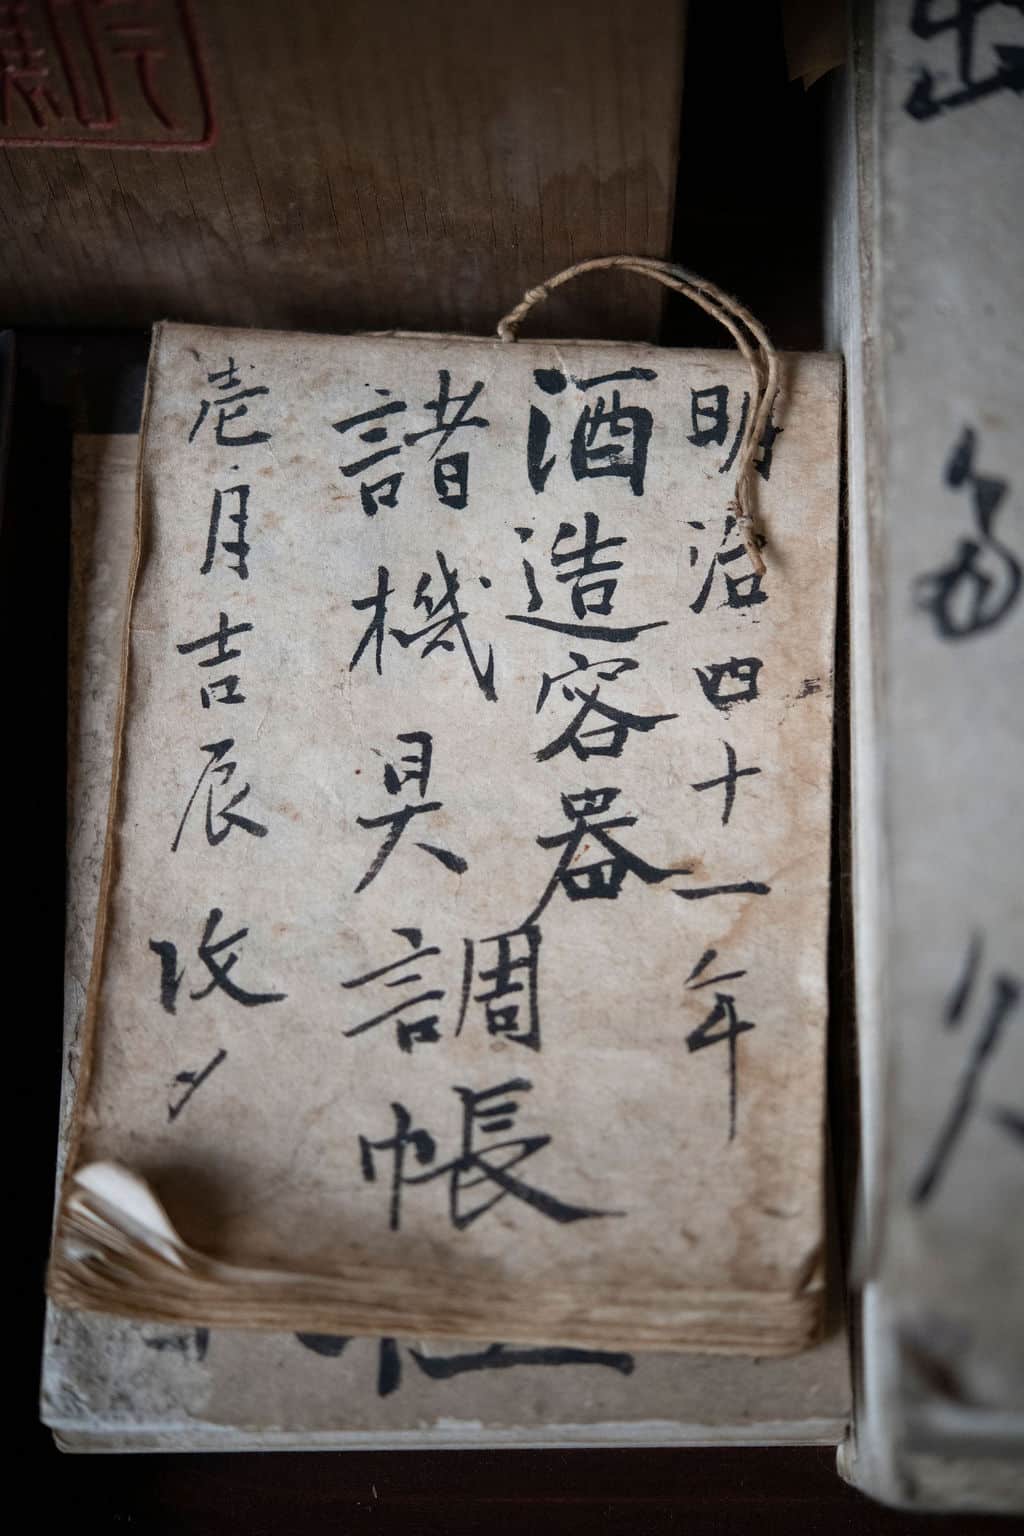 明治四十一年
酒造容器
諸機具調帳
壱月吉辰改〆